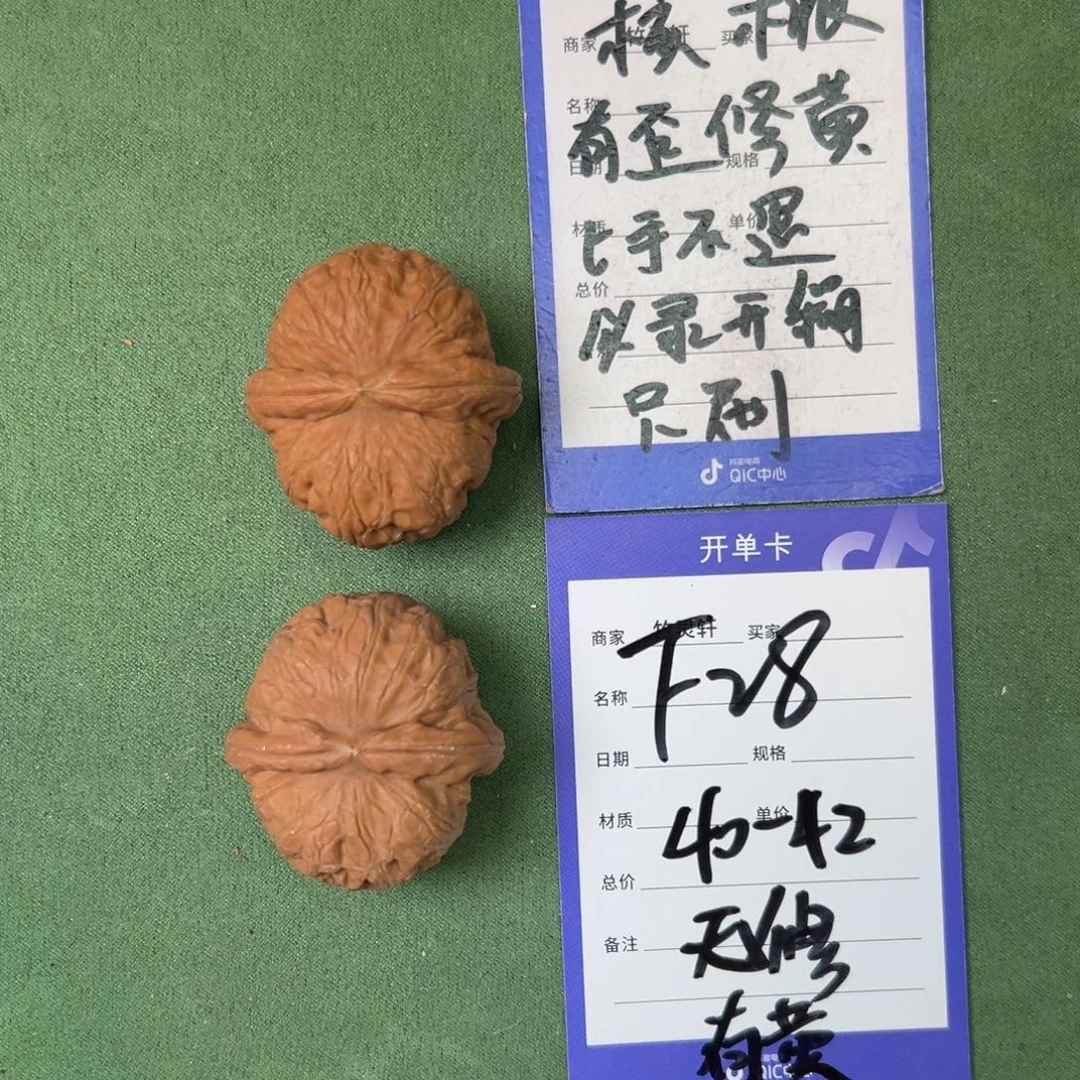 核桃
商家 买家
名称
有歪修黄
日期 规格
材质 单价
上手不退
总价
必录开箱
只刷
抖音电商
QIC中心
开单卡
商家 竹灵轩 买家
F28
名称
日期 规格
材质 单价
40-42
总价
无修
备注
有黄
QIC中心